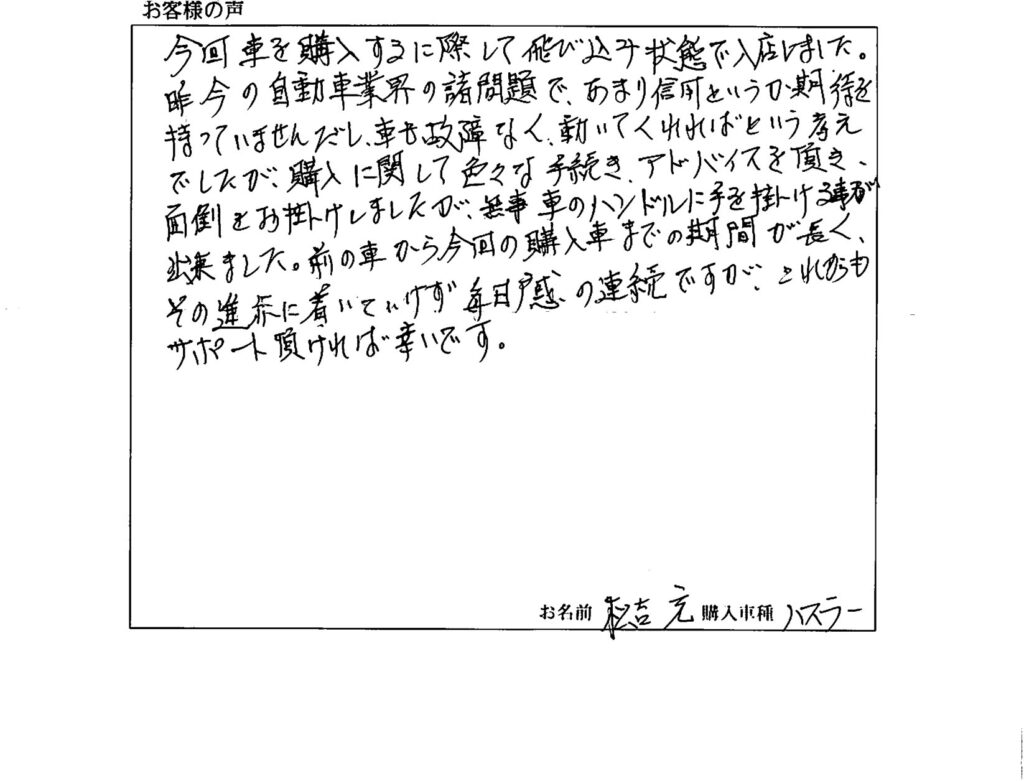 お客様の声
今回車を購入するに際して飛び込み状態で入店しました。
昨今の自動車業界の諸問題で、あまり信用というか期待を
持っていませんだし、車も故障なく、動いてくれればという考え
でしたが、購入に関して色々な手続き、アドバイスを頂き、
面倒をお掛けしましたが、無事車のハンドルに手を掛ける事が
出来ました。前の車から今回の購入車までの期間が長く、
その進歩に着いていけず毎日戸惑の連続ですが、これからも
サポート頂ければ幸いです。
お名前 松吉 充 購入車種 ハスラー